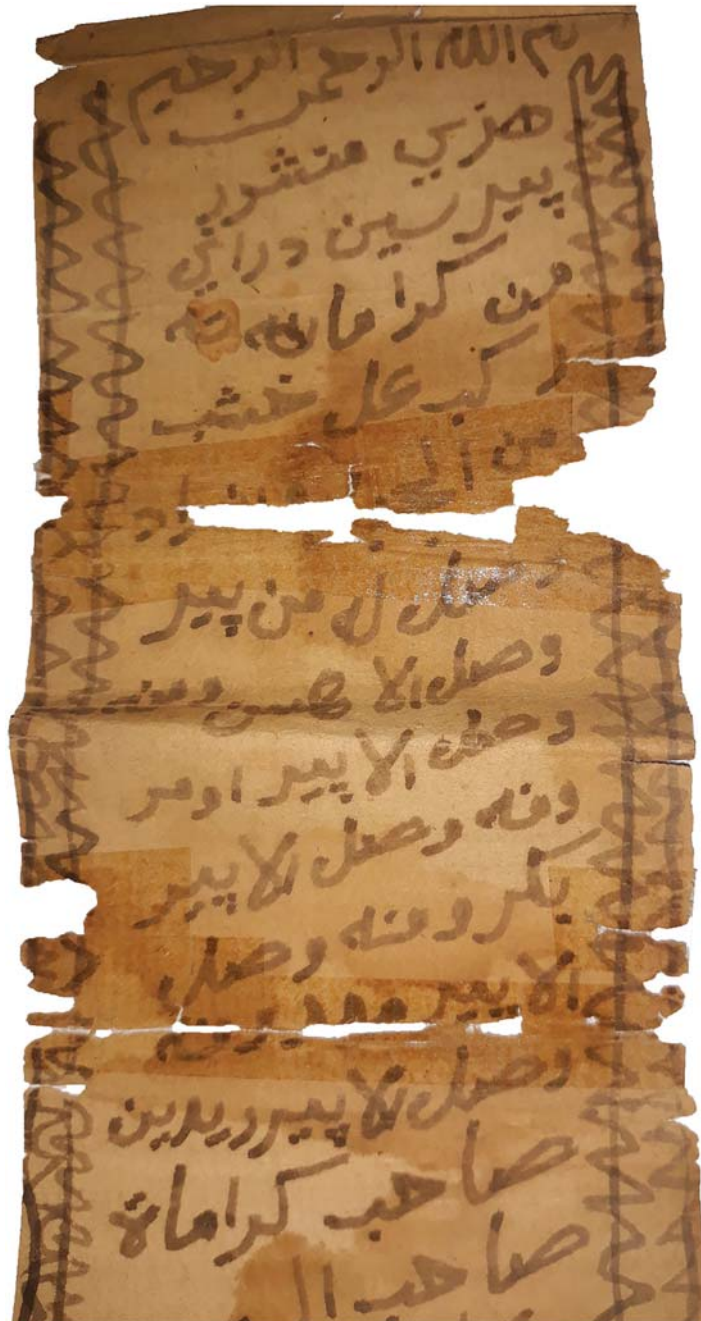 بسم الله الرحمن الرحيم
هزي منشور
پير سين دراني
من كراماته
ركب عل خشب
من
وصل له من پير
وصل الا حسن ومنه
وصل الا پير اومر
ومنه وصل الا پير
بكر ومنه وصل
الا پير ومنه
وصل الا پير
صاحب كراماة
صاحب